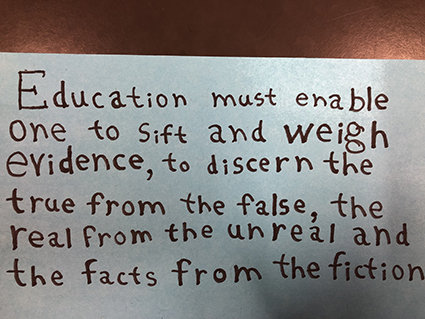 Education must enable
one to sift and weigh
evidence, to discern the
true from the false, the
real from the unreal and
the facts from the fiction